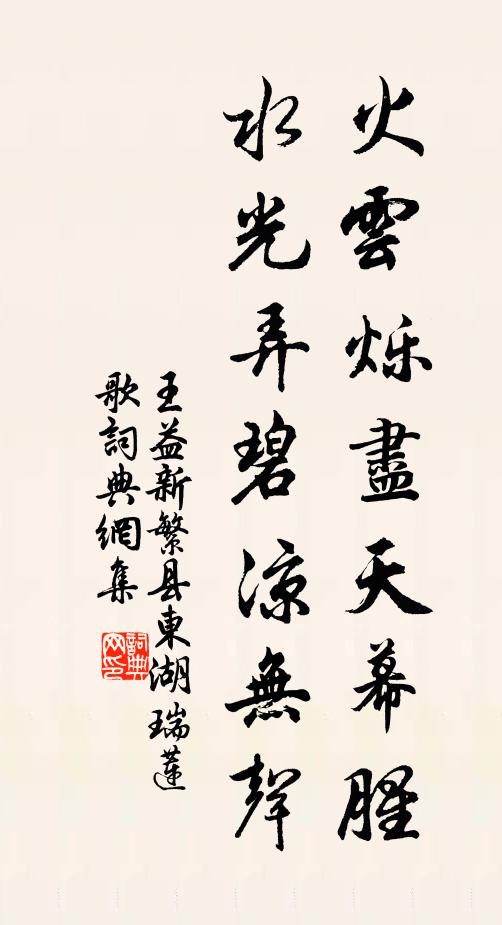 火雲烁盡天幕腥
水光弄碧涼無聲
王益新繁县東湖瑞蓮
歌詞典網集
詞典
网印